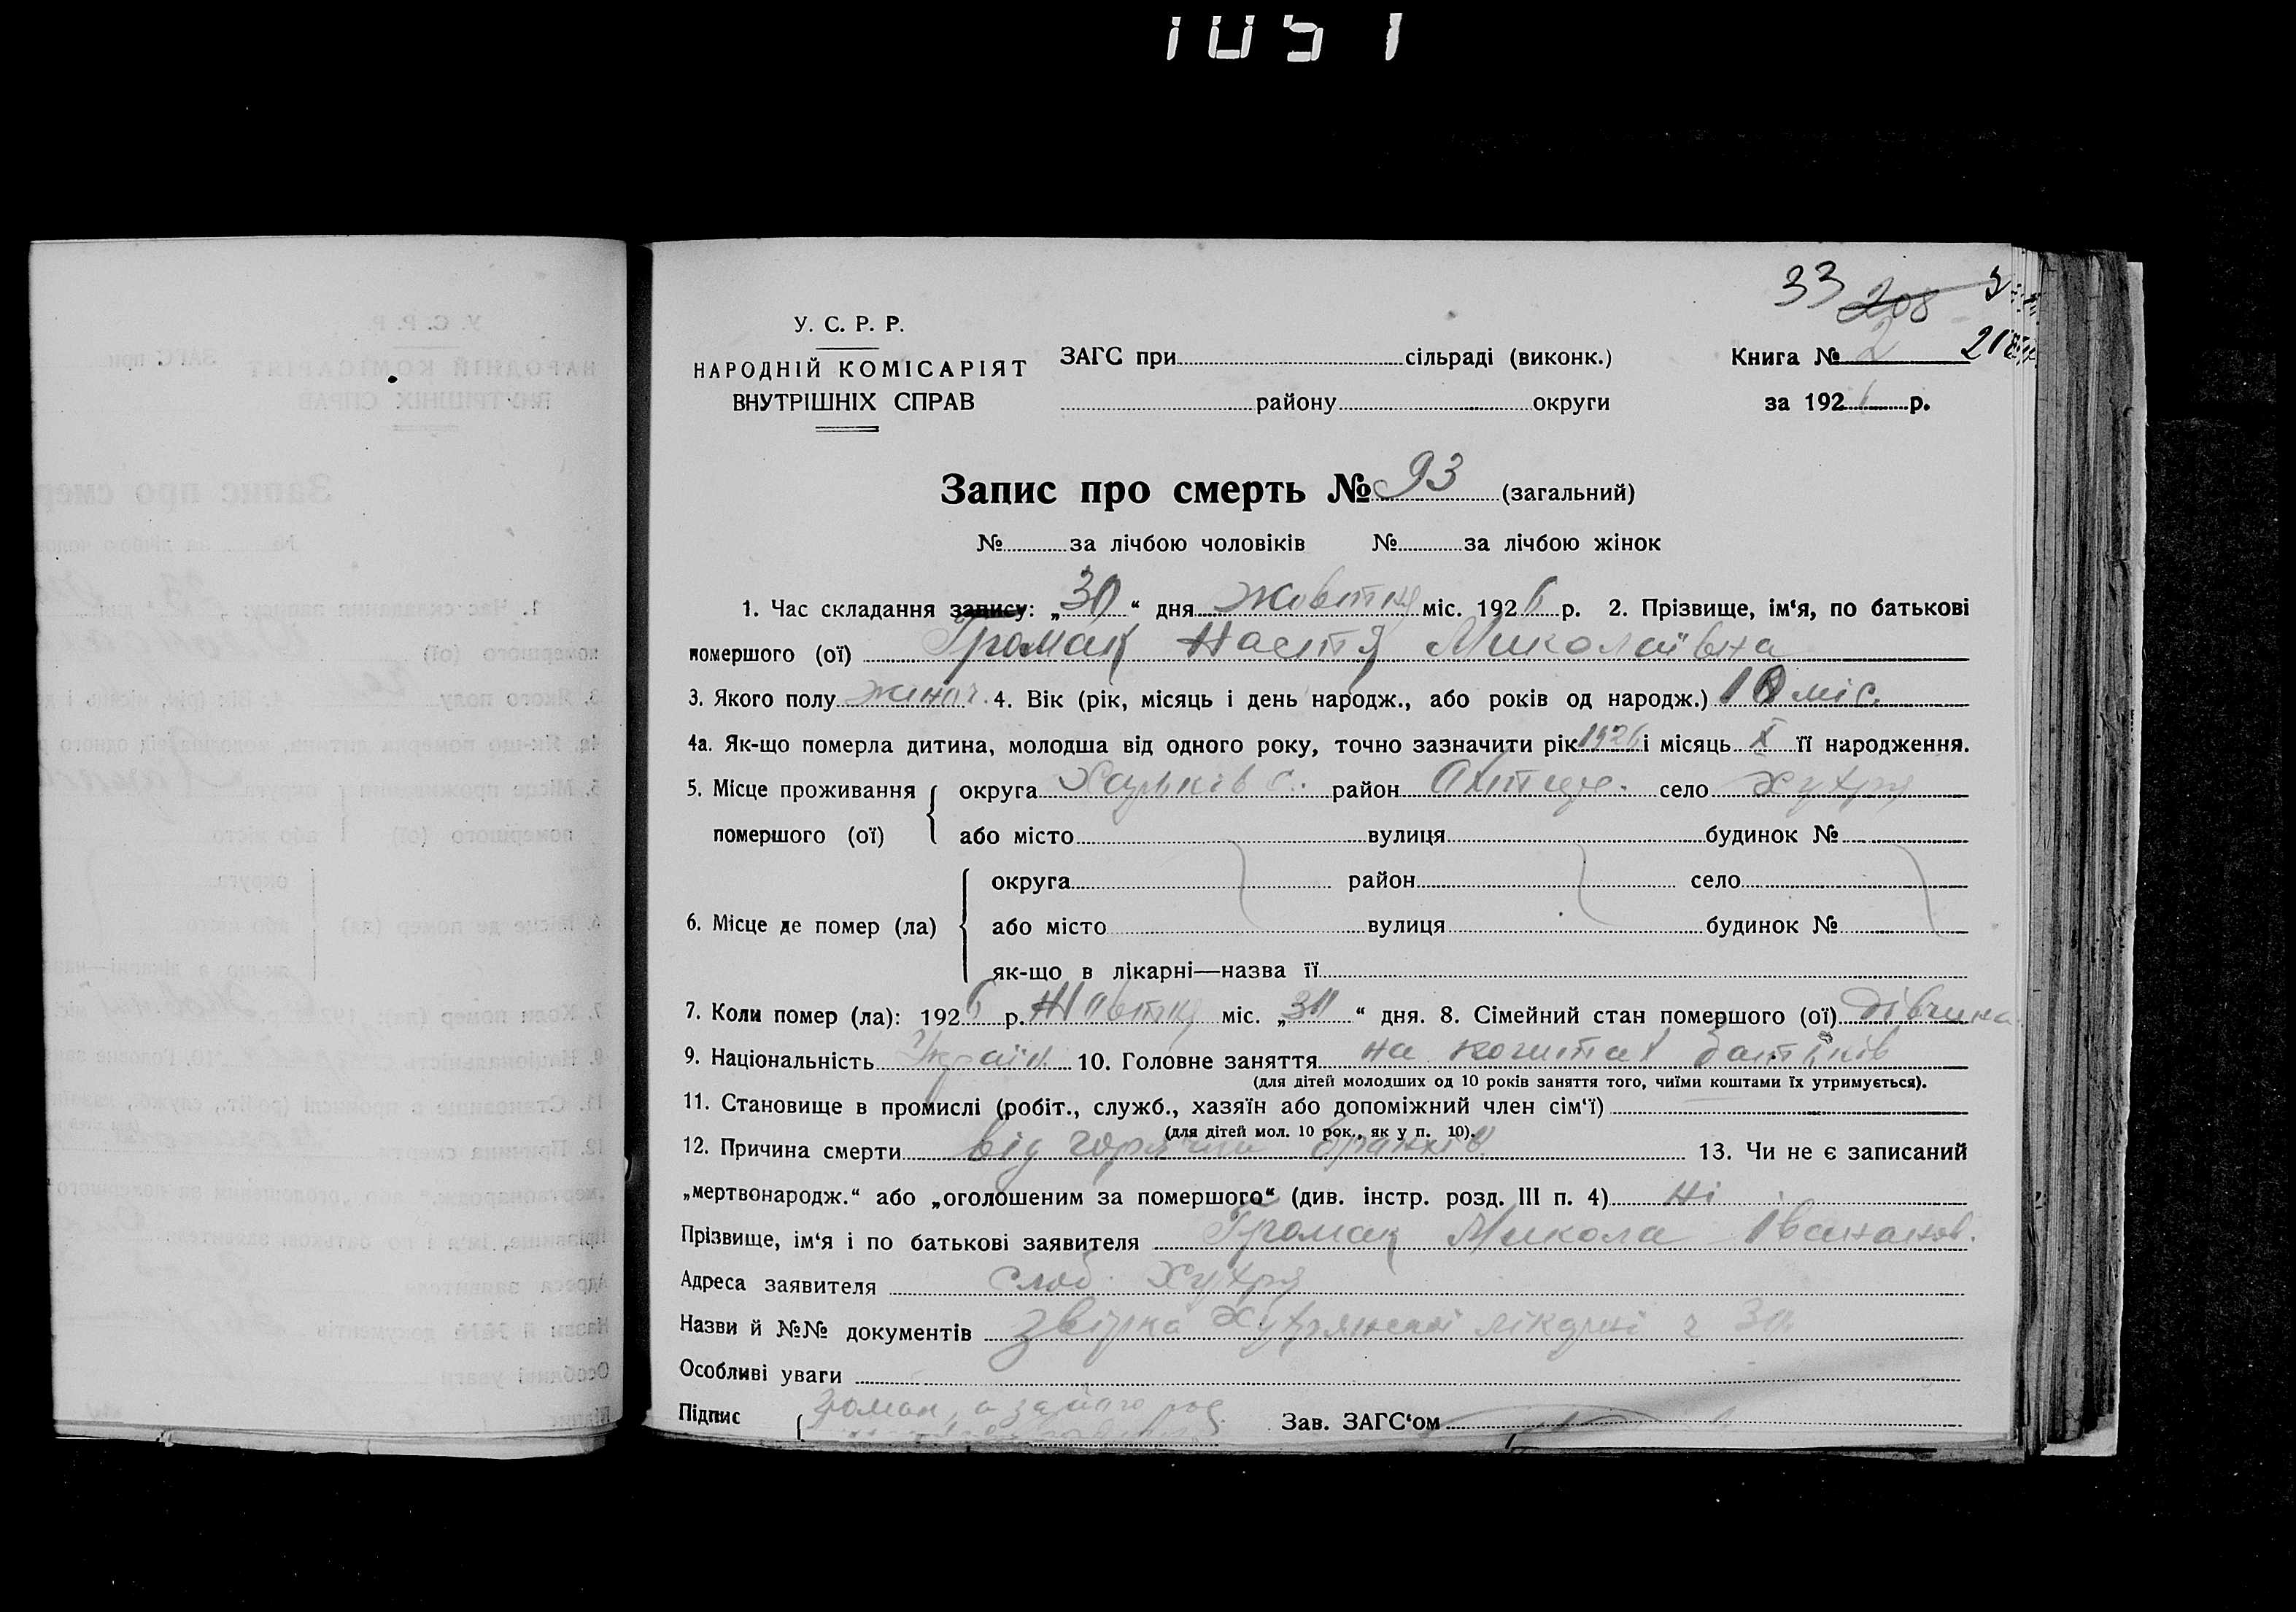 1051
33 208 3
У. С. Р. Р.
НАРОДНІЙ КОМІСАРІЯТ
ВНУТРІШНІХ СПРАВ
ЗАГС при сільраді (виконк.)
району округи
Книга № 2
за 1926 р.
Запис про смерть № 93 (загальний)
№ за лічбою чоловіків № за лічбою жінок
1. Час складання запису: „30“ дня Жовтня міс. 1926 р. 2. Прізвище, ім‘я, по батькові
помершого (ої) Громак Настя Миколаївна
3. Якого полу жіноч. 4. Вік (рік, місяць і день народж., або років од народж.) міс.
4а. Як-що померла дитина, молодша від одного року, точно зазначити рік 1926 і місяць X її народження.
5. Місце проживання округа Харьків с. район Охтир. село Хухря
помершого (ої) або місто вулиця будинок №
округа район село
6. Місце де помер (ла) або місто вулиця будинок №
як-що в лікарні—назва її
7. Коли помер (ла): 1926 р. Жовтня міс. „30“ дня. 8. Сімейний стан помершого (ої) дівчина
9. Національність Україн. 10. Головне заняття на коштах батьків
(для дітей молодших од 10 років заняття того, чиїми коштами їх утримується).
11. Становище в промислі (робіт., служб., хазяїн або допоміжний член сім‘ї)
(для дітей мол. 10 рок., як у п. 10).
12. Причина смерти від 13. Чи не є записаний
„мертвонародж.“ або „оголошеним за помершого“ (див. інстр. розд. III п. 4) Ні
Прізвище, ім‘я і по батькові заявителя Громак Микола Іванов.
Адреса заявителя слоб. Хухря
Назви й №№ документів лікарні
Особливі уваги
Підпис Громак, а за його
Зав. ЗАГС‘ом